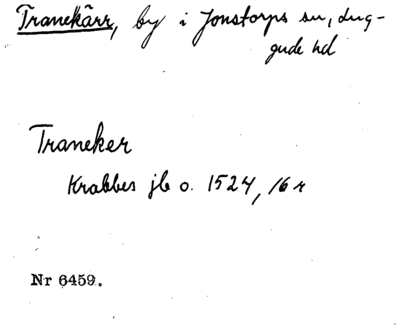 Tranekärr, by i Jonstorps sn, Lug-
gude hd
Traneker
Krabbes jb o. 1524, 16 r
Nr 6459.